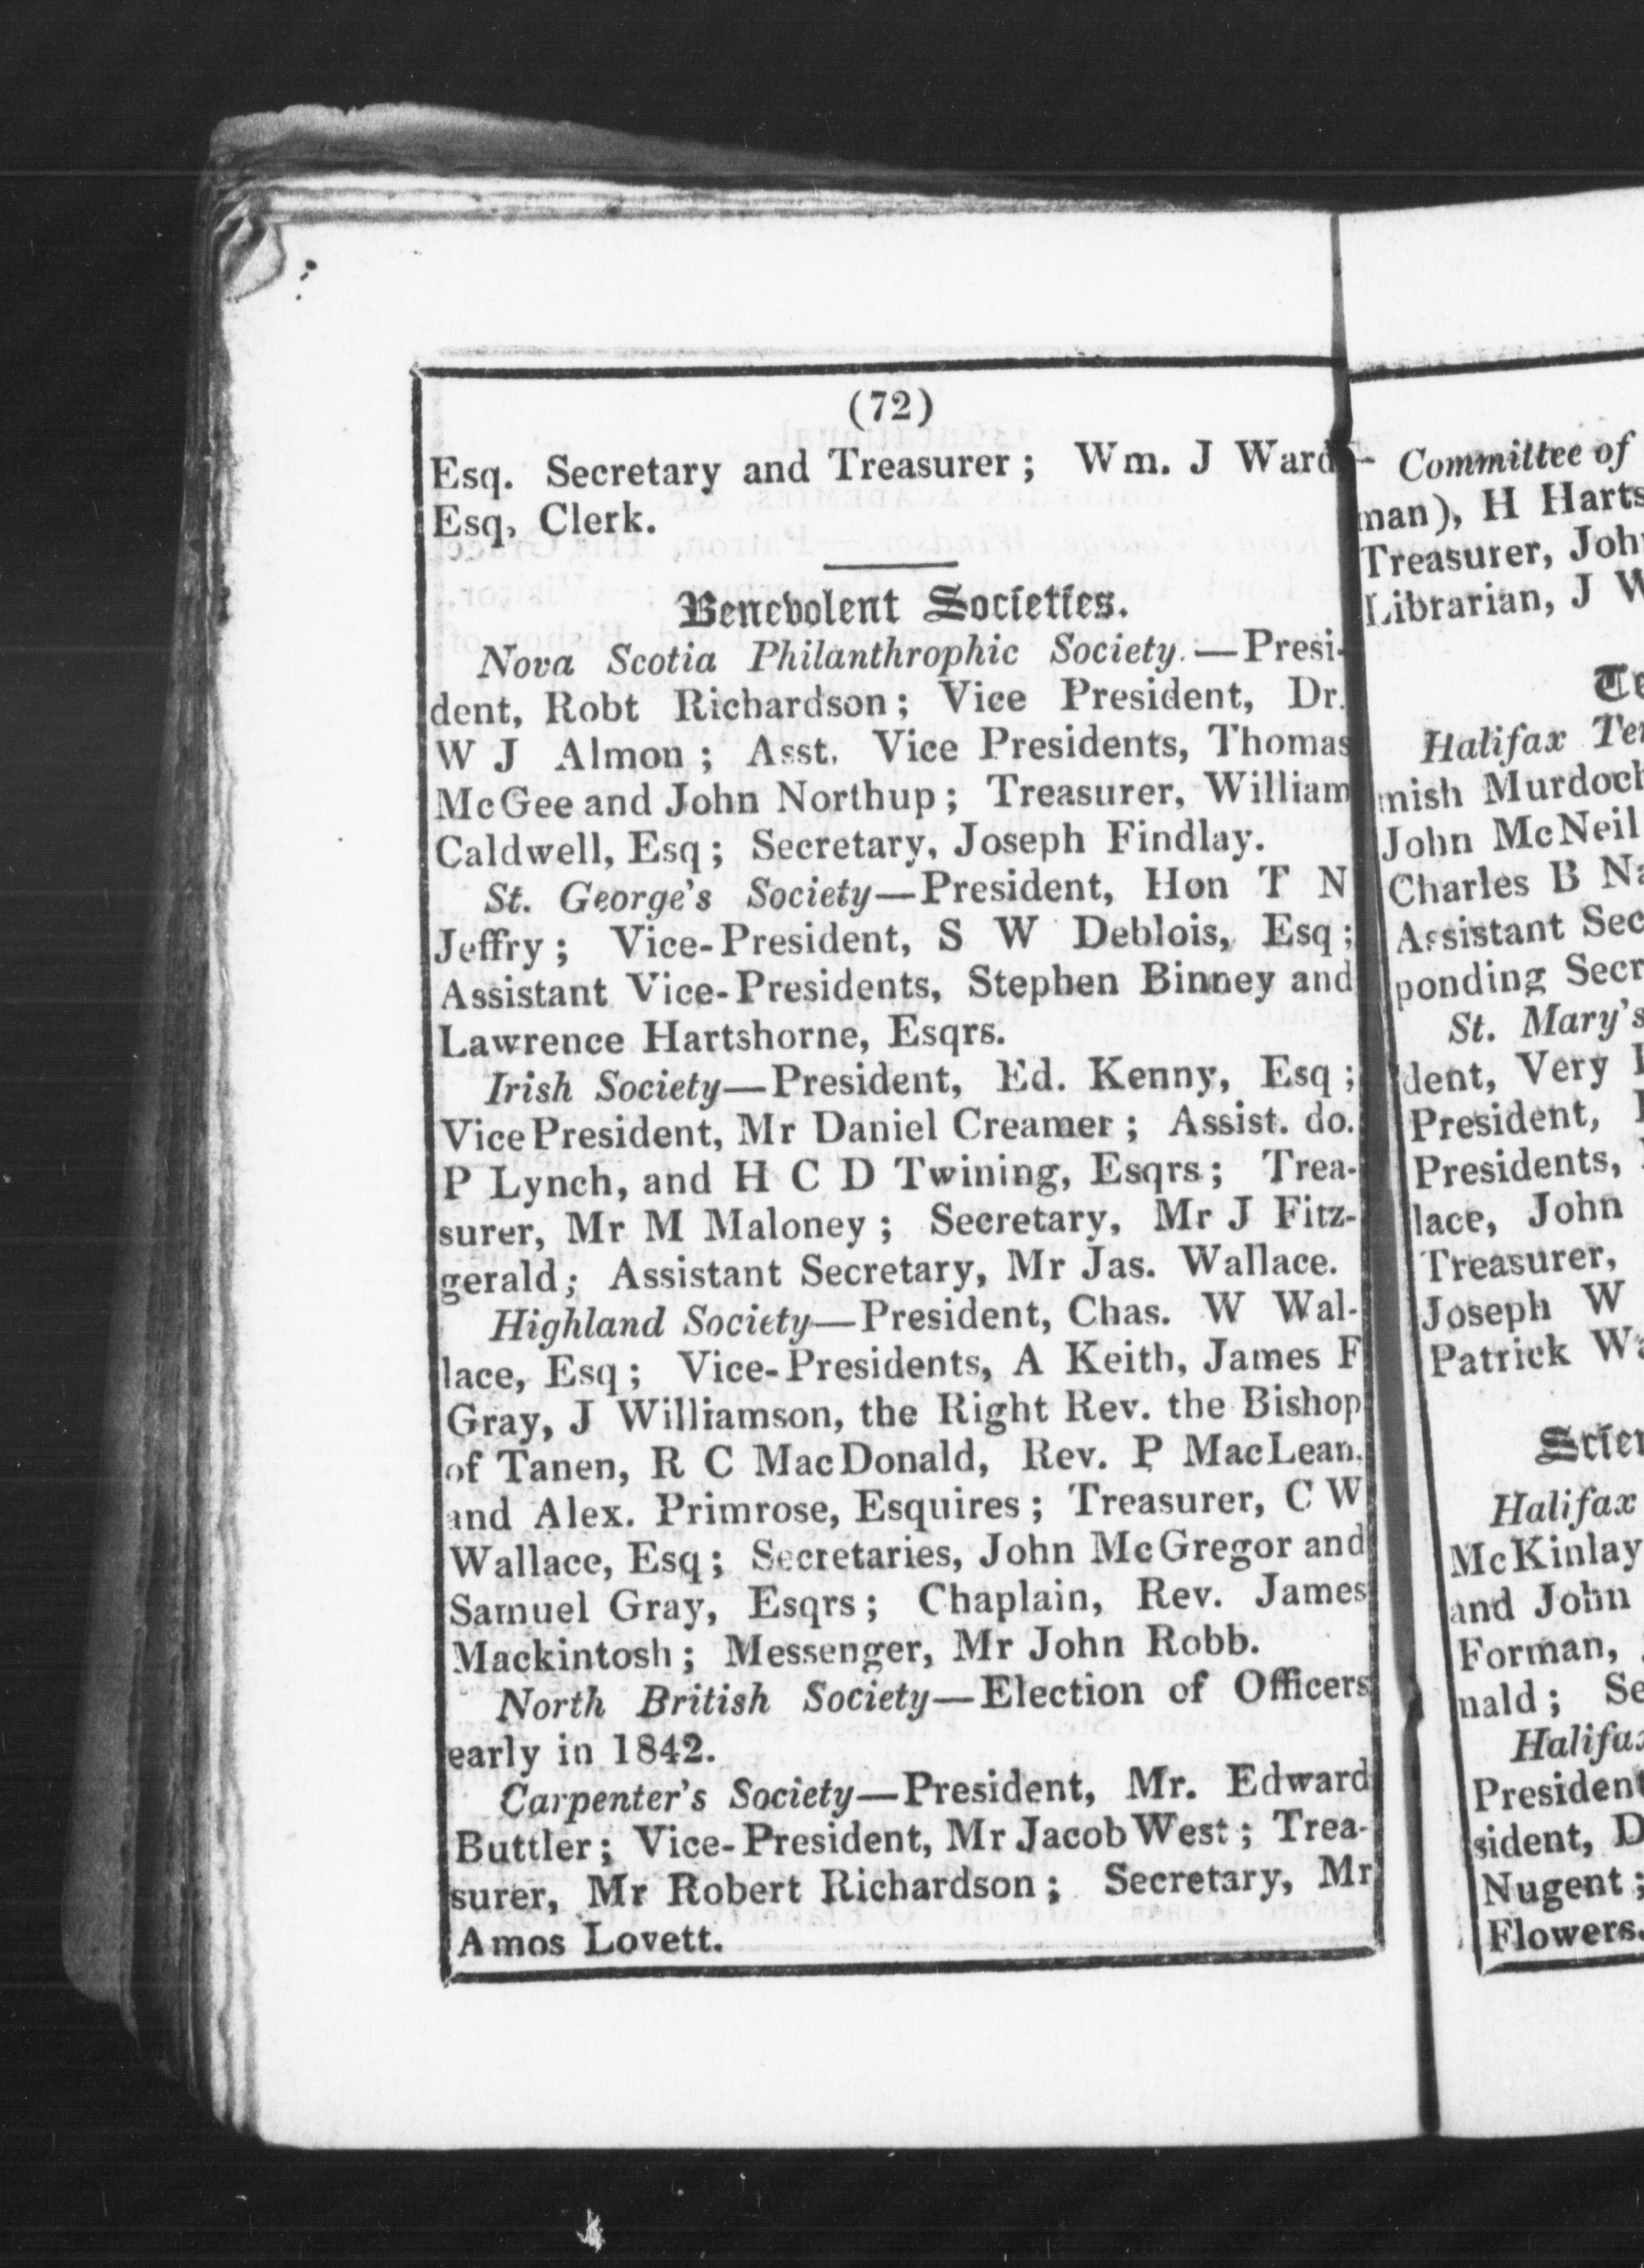 (72)
Esq. Secretary and Treasurer; Wm. J Ward
Esq, Clerk.
Benevolent Societies.
Nova Scotia Philanthrophic Society.—Presi-
dent, Robt Richardson; Vice President, Dr.
W J Almon; Asst. Vice Presidents, Thomas
McGee and John Northup; Treasurer, William
Caldwell, Esq; Secretary, Joseph Findlay.
St. George's Society—President, Hon T N
Jeffry; Vice-President, S W Deblois, Esq;
Assistant Vice-Presidents, Stephen Binney and
Lawrence Hartshorne, Esqrs.
Irish Society—President, Ed. Kenny, Esq;
Vice President, Mr Daniel Creamer; Assist. do.
P Lynch, and H C D Twining, Esqrs; Trea-
surer, Mr M Maloney; Secretary, Mr J Fitz-
gerald; Assistant Secretary, Mr Jas. Wallace.
Highland Society—President, Chas. W Wal-
lace, Esq; Vice-Presidents, A Keith, James F
Gray, J Williamson, the Right Rev. the Bishop
of Tanen, R C MacDonald, Rev. P MacLean,
and Alex. Primrose, Esquires; Treasurer, C W
Wallace, Esq; Secretaries, John McGregor and
Samuel Gray, Esqrs; Chaplain, Rev. James
Mackintosh; Messenger, Mr John Robb.
North British Society—Election of Officers
early in 1842.
Carpenter's Society—President, Mr. Edward
Buttler; Vice-President, Mr Jacob West; Trea-
surer, Mr Robert Richardson; Secretary, Mr
Amos Lovett.
Committee of
man), H Harts
Treasurer, John
Librarian, J W
Te
Halifax Te
mish Murdoch
John McNeil
Charles B Na
Assistant Sec
ponding Secr
St. Mary's
dent, Very
President,
Presidents,
lace, John
Treasurer,
Joseph W
Patrick Wa
Scien
Halifax
McKinlay
and John
Forman,
nald; Se
Halifax
President
sident, D
Nugent;
Flowers.